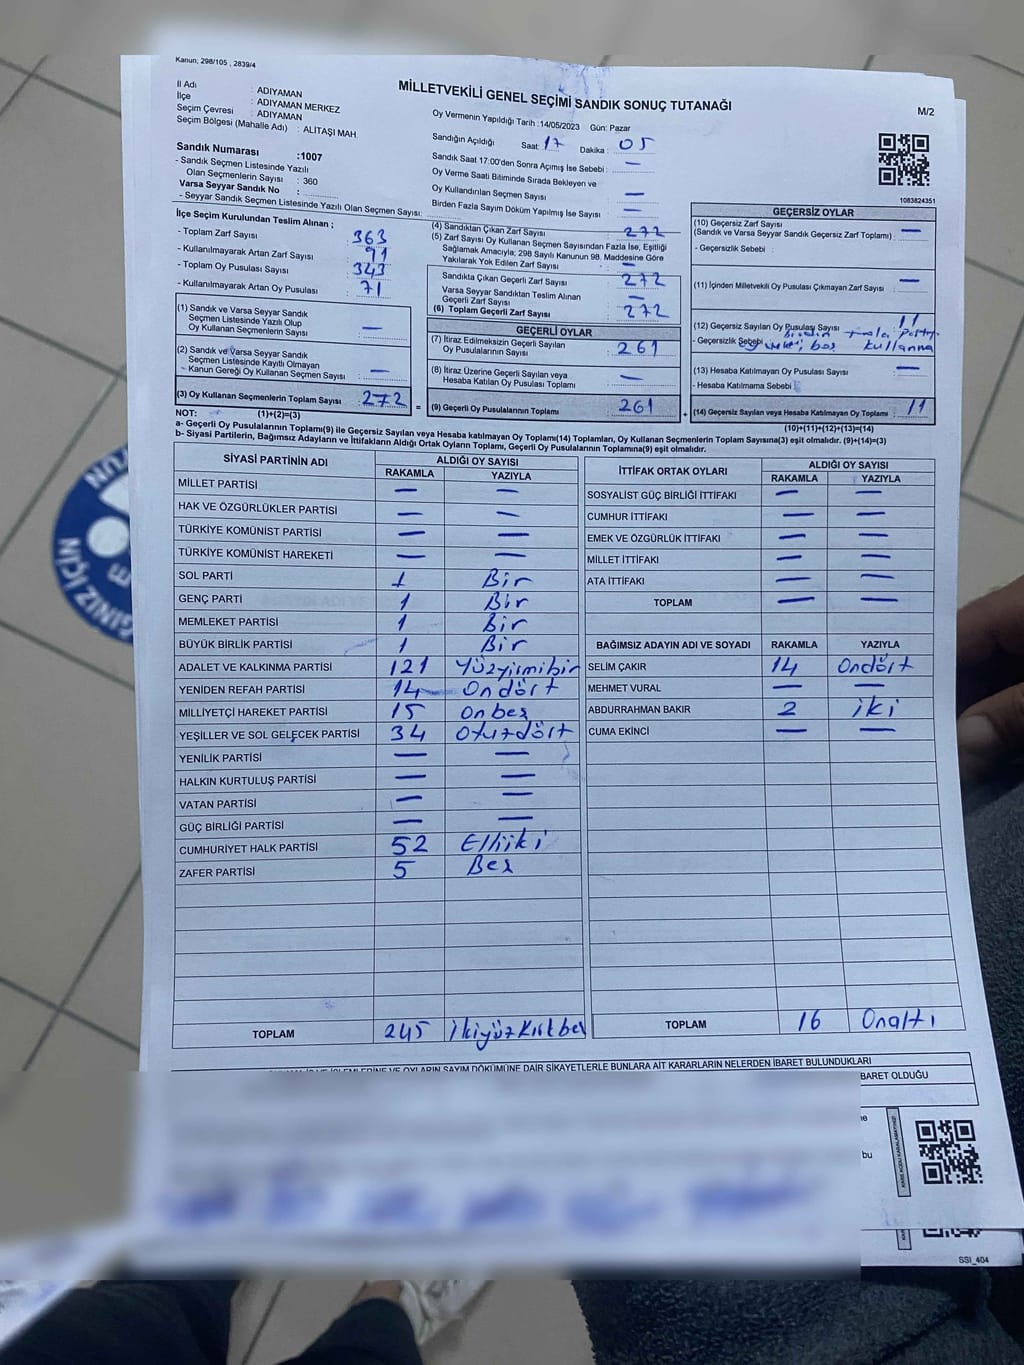 Kanun; 298/105 , 2839/4
MİLLETVEKİLİ GENEL SEÇİMİ SANDIK SONUÇ TUTANAĞI
M/2
İl Adı : ADIYAMAN
İlçe : ADIYAMAN MERKEZ
Seçim Çevresi : ADIYAMAN
Seçim Bölgesi (Mahalle Adı) : ALİTAŞI MAH.
Sandık Numarası :1007
- Sandık Seçmen Listesinde Yazılı
Olan Seçmenlerin Sayısı : 360
Varsa Seyyar Sandık No :
- Seyyar Sandık Seçmen Listesinde Yazılı Olan Seçmen Sayısı:
Oy Vermenin Yapıldığı Tarih :14/05/2023 Gün: Pazar
Sandığın Açıldığı Saat: 17 Dakika : 05
Sandık Saat 17:00'den Sonra Açımış İse Sebebi : —
Oy Verme Saati Bitiminde Sırada Bekleyen ve
Oy Kullandırılan Seçmen Sayısı —
Birden Fazla Sayım Döküm Yapılmış İse Sayısı —
1083824351
İlçe Seçim Kurulundan Teslim Alınan ;
- Toplam Zarf Sayısı : 363
- Kullanılmayarak Artan Zarf Sayısı : 91
- Toplam Oy Pusulası Sayısı : 343
- Kullanılmayarak Artan Oy Pusulası : 71
(1) Sandık ve Varsa Seyyar Sandık
Seçmen Listesinde Yazılı Olup
Oy Kullanan Seçmenlerin Sayısı : —
(2) Sandık ve Varsa Seyyar Sandık
Seçmen Listesinde Kayıtlı Olmayan
- Kanun Gereği Oy Kullanan Seçmen Sayısı : —
(3) Oy Kullanan Seçmenlerin Toplam Sayısı : 272
(4) Sandıktan Çıkan Zarf Sayısı : 272
(5) Zarf Sayısı Oy Kullanan Seçmen Sayısından Fazla İse, Eşitliği
Sağlamak Amacıyla; 298 Sayılı Kanunun 98. Maddesine Göre
Yakılarak Yok Edilen Zarf Sayısı : —
Sandıkta Çıkan Geçerli Zarf Sayısı : 272
Varsa Seyyar Sandıktan Teslim Alınan
Geçerli Zarf Sayısı : —
(6) Toplam Geçerli Zarf Sayısı : 272
GEÇERLİ OYLAR
(7) İtiraz Edilmeksizin Geçerli Sayılan
Oy Pusulalarının Sayısı : 261
(8) İtiraz Üzerine Geçerli Sayılan veya
Hesaba Katılan Oy Pusulası Toplamı : —
= (9) Geçerli Oy Pusulalarının Toplamı : 261
GEÇERSİZ OYLAR
(10) Geçersiz Zarf Sayısı : —
(Sandık ve Varsa Seyyar Sandık Geçersiz Zarf Toplamı)
- Geçersizlik Sebebi :
(11) İçinden Milletvekili Oy Pusulası Çıkmayan Zarf Sayısı : —
(12) Geçersiz Sayılan Oy Pusulası Sayısı : 11
- Geçersizlik Sebebi
birden fazla
boş kullanma
(13) Hesaba Katılmayan Oy Pusulası Sayısı : —
- Hesaba Katılmama Sebebi
+ (14) Geçersiz Sayılan veya Hesaba Katılmayan Oy Toplamı : 11
NOT: (1)+(2)=(3)
(10)+(11)+(12)+(13)=(14)
a- Geçerli Oy Pusulalarının Toplamı(9) ile Geçersiz Sayılan veya Hesaba katılmayan Oy Toplamı(14) Toplamları, Oy Kullanan Seçmenlerin Toplam Sayısına(3) eşit olmalıdır. (9)+(14)=(3)
b- Siyasi Partilerin, Bağımsız Adayların ve İttifakların Aldığı Ortak Oyların Toplamı, Geçerli Oy Pusulalarının Toplamına(9) eşit olmalıdır.
SİYASİ PARTİNİN ADI ALDIĞI OY SAYISI
RAKAMLA YAZIYLA
MİLLET PARTİSİ — —
HAK VE ÖZGÜRLÜKLER PARTİSİ — —
TÜRKİYE KOMÜNİST PARTİSİ — —
TÜRKİYE KOMÜNİST HAREKETİ — —
SOL PARTİ 1 Bir
GENÇ PARTİ 1 Bir
MEMLEKET PARTİSİ 1 Bir
BÜYÜK BİRLİK PARTİSİ 1 Bir
ADALET VE KALKINMA PARTİSİ 121 Yüzyirmibir
YENİDEN REFAH PARTİSİ 14 Ondört
MİLLİYETÇİ HAREKET PARTİSİ 15 Onbeş
YEŞİLLER VE SOL GELECEK PARTİSİ 34 Otuzdört
YENİLİK PARTİSİ — —
HALKIN KURTULUŞ PARTİSİ — —
VATAN PARTİSİ — —
GÜÇ BİRLİĞİ PARTİSİ — —
CUMHURİYET HALK PARTİSİ 52 Elliiki
ZAFER PARTİSİ 5 Beş
TOPLAM 245 İkiyüzkırkbeş
İTTİFAK ORTAK OYLARI ALDIĞI OY SAYISI
RAKAMLA YAZIYLA
SOSYALİST GÜÇ BİRLİĞİ İTTİFAKI — —
CUMHUR İTTİFAKI — —
EMEK VE ÖZGÜRLÜK İTTİFAKI — —
MİLLET İTTİFAKI — —
ATA İTTİFAKI — —
TOPLAM — —
BAĞIMSIZ ADAYIN ADI VE SOYADI RAKAMLA YAZIYLA
SELİM ÇAKIR 14 Ondört
MEHMET VURAL — —
ABDURRAHMAN BAKIR 2 iki
CUMA EKİNCİ — —
TOPLAM 16 Onaltı
VE OYLARIN SAYIM DÖKÜMÜNE DAİR ŞİKAYETLERLE BUNLARA AİT KARARLARIN NELERDEN İBARET BULUNDUKLARI
BARET OLDUĞU
bu
SSI_404